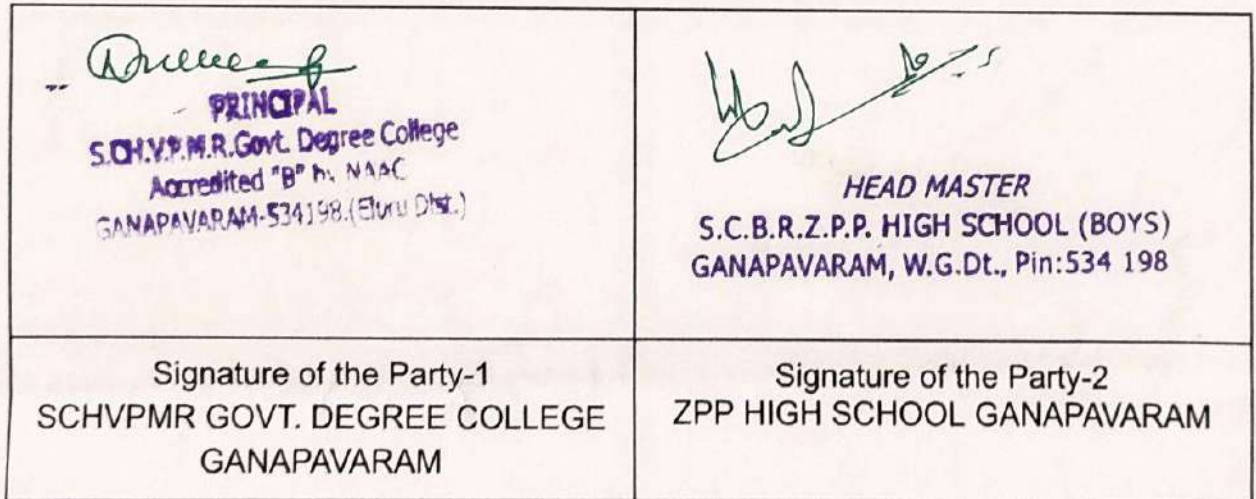 PRINCIPAL
S.CH.V.P.M.R.Govt. Degree College
Accredited "B" by NAAC
GANAPAVARAM-534198.(Eluru Dist.)
HEAD MASTER
S.C.B.R.Z.P.P. HIGH SCHOOL (BOYS)
GANAPAVARAM, W.G.Dt., Pin:534 198
Signature of the Party-1
SCHVPMR GOVT. DEGREE COLLEGE
GANAPAVARAM
Signature of the Party-2
ZPP HIGH SCHOOL GANAPAVARAM